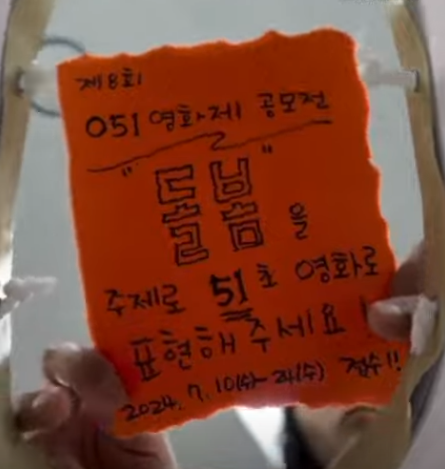 제8회
051영화제 공모전
"돌봄"을
주제로 51초 영화로
표현해주세요!
2024. 7. 10(수)~24(수) 접수!!